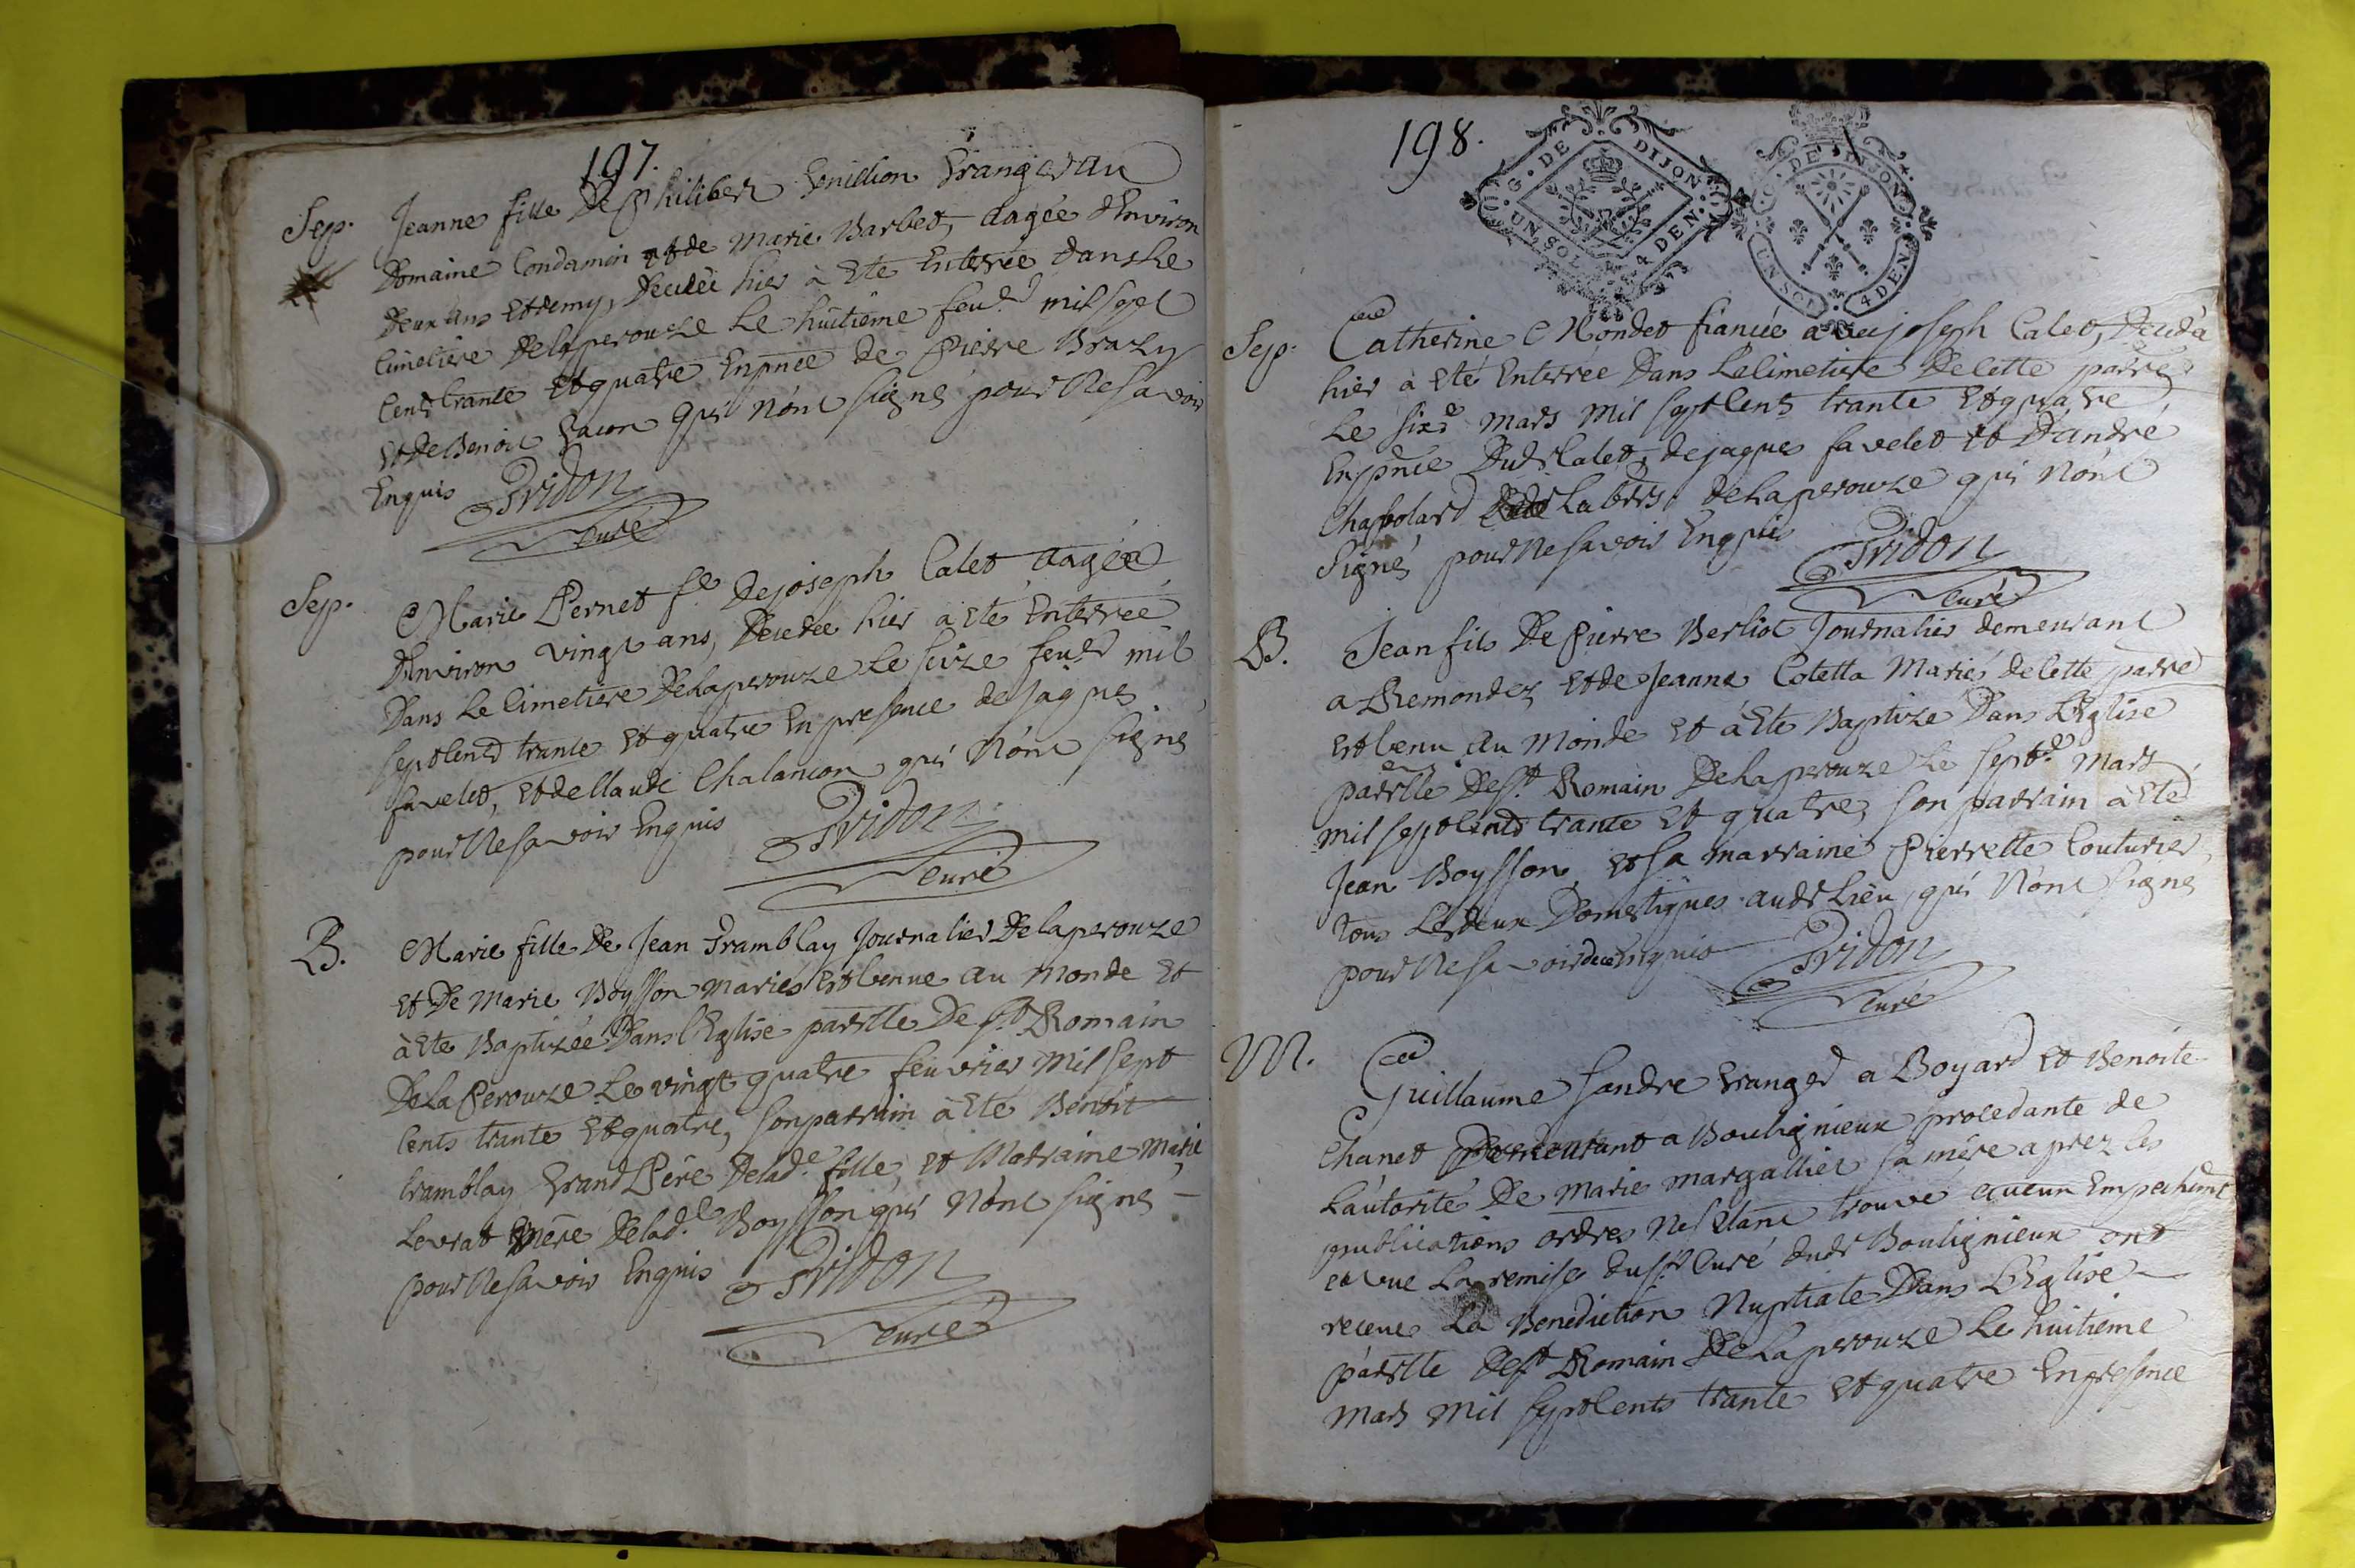 197.
Sep. Jeanne fille De Philiber Granger au
Domaine Condamin et de Marie Barbet, aagée d'Environ
Deux ans et demy, Decedée hier à Ete Enterrée dans Le
Cimetiere Delaperouze Le huitieme feu.er mil sept
Cents trante et quatre En pnce de Pierre Brazy
et de Benoit qui nónt signé pour Ne savoir
Enquis Pridon
Curé
Sep. Marie Pernet fe de joseph Calet aagée
D'Environ vingt ans, Decedée hier à Eté Enterrée
Dans Le Cimetiere Delaperouze Le seize feu.er mil
sept Cents trante et quatre En presence de jaques
favelet, et de Claude Chalancon qui Nónt signé
pour Ne savoir Enquis Pridon
Curé
B. Marie fille De Jean Tramblay Journalier Delaperouze
et De Marie Boysson mariés est venue au monde et
à Eté Baptizée Dans l'Eglise parrlle De st Romain
De La Perouze Le vingt quatre feuvrier mil sept
Cents trante et quatre, son parrain à Eté Benoit
tramblay Grand Pére De lad.e fille, et Marraine Marie
Levrat Mére De lad.e Boysson qui Nónt signé
pour Ne savoir Enquis Pridon
Curé
198.
G. DE DIJON
UN SOL 4 DEN.
G. DE DIJON
UN SOL 4 DEN.
Sep. Catherine Mondet fiancée a joseph Calet, Decedée
hier à eté Enterrée Dans Le Cimetiere De Cette parre
Le sixe Mars Mil sept Cents trante et quatre
En pnce Dud Calet, de jaques favelet et D'andré
Chaffolard delaperouze qui Nónt
Signé pour Ne savoir Enquis Pridon
Curé
B. Jean fils De Pierre Berliot Journalier demeurant
a Remondez et de Jeanne Cotetta Mariés de Cette parre
est venu au Monde et à Eté Baptize Dans L'Eglise
parrlle De st Romain Delaperouze Le septe Mars
mil sept Cents trante et quatre, son parrain à eté
Jean Boysson et sa marraine Pierrette Couturier
tous Les deux Domestiques aud Lieu, qui Nónt signé
pour Ne savoir de ce Enquis Pridon
Curé
M. Guillaume Sandre Granger a Boyard et Benoite
Chanet Demeurant a Bouligneux procedante de
L'autorité De Marie Margallier sa mére aprez les
publications ordres Ne setant trouve aucun Empechemt
et vue La remise du sr Curé dud Bouligneux ont
receue La Benediction Nuptiale Dans L'Eglise
parrlle De st Romain De Laperouze Le huitieme
Mars mil sept Cents trante et quatre En presence